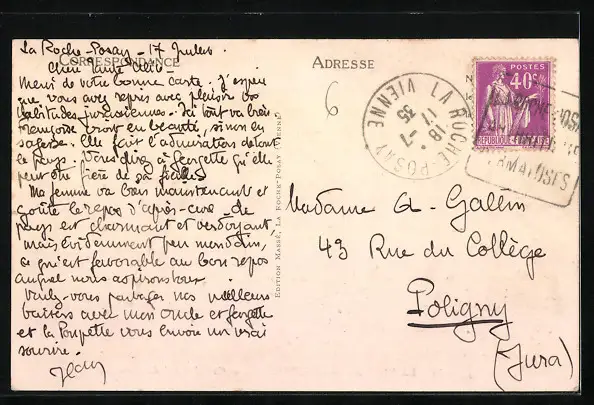 La Roche-Posay - 17 Juillet.
CORRESPONDANCE
Chère Tante
Merci de votre bonne carte. J'espère
que vous avez repris avec plaisir vos
habitudes jurassiennes. Ici tout va bien
Françoise croit en beauté, sinon en
sagesse. Elle fait l'admiration de tout
le pays. Vous direz à Georgette qu'elle
peut être fière de sa filleule
Ma femme va bien maintenant et
goûte le repos d'après-cure - le
pays est charmant et verdoyant
mais évidemment peu mondain,
ce qui est favorable au bon repos
auquel nous aspirons tous
Voulez-vous partager nos meilleurs
baisers avec mon oncle et Georgette
et la Poupette vous envoie un vrai
sourire.
Jean
EDITION MASSÉ, LA ROCHE-POSAY (VIENNE)
ADRESSE
6
LA ROCHE-POSAY
VIENNE
18 -7
35
POSTES
40c
REPUBLIQUE FRANÇAISE
Madame A. Gallin
43 Rue du Collège
Poligny
(Jura)